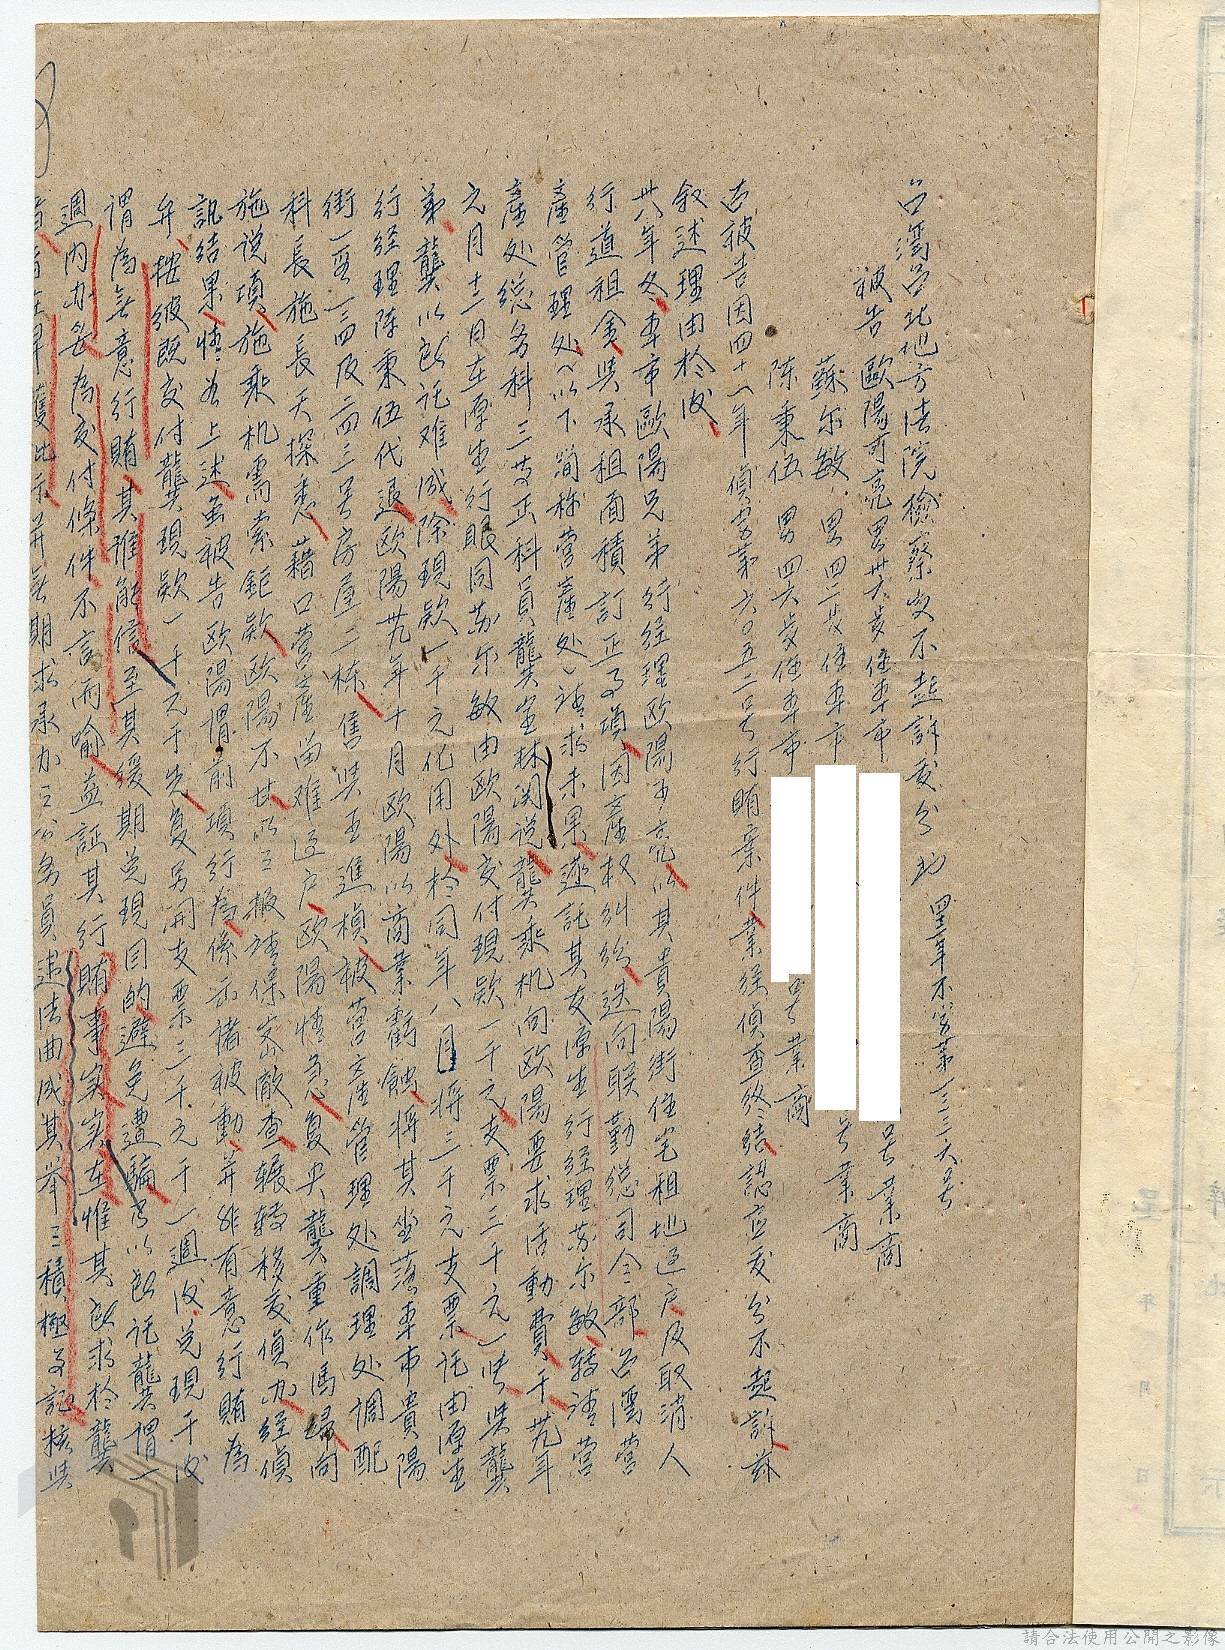 台灣台北地方法院檢察處不起訴處分書 四十一年不字第三三六号
被告 歐陽可亮 男 卅六歲 住本市 号 業商
蘇尔敏 男 四二歲 住本市 号 業商
陳秉伍 男 四六歲 住本市 号 業商
右被告因四十一年偵字第六〇五二号行賄案件業經偵查終結認应處分不起訴茲
叙述理由於後
卅八年冬本市歐陽兄弟行經理歐陽可亮以其貴陽街住宅租地过户及取消人
行道租金與承租面積訂正事項因產权糾紛迭向联勤總司令部台灣營
產管理处(以下簡称營產处)請求未果遂託其友源生行經理蘇尔敏轉請營
產处總务科三等正科員龔 林関說龔乘机向歐陽要求活動費于卅九年
元月十二日在源生行眼同蘇尔敏由歐陽交付現款一千元支票三千元一紙與龔
弟龔以 託难成除現款一千元化用外於同年八月將三千元支票託由源生
行經理陈秉伍代退歐陽卅九年十月歐陽以商業虧蝕將其坐落本市貴陽
街一 一三四及二四三号房屋二栋售與王進楨被營產管理处調理处調配
科長施長天探悉藉口營產尚难过户歐陽情急复央龔重作馮婦向
施說項施乘机需索鉅款歐陽不甘以 報請保密廠查輾轉移處偵办經偵
訊結果情形如上述虽被告歐陽謂前項行為係示諸被動并非有意行賄為
弁按彼既交付龔現款一千元于先复另開支票三千元于一週後兑現于後
謂為無意行賄其誰能信至其緩期兑現目的避免遭騙乃以 託龔謂一
週内办妥為交付條件不言而喻益証其行賄事实实在惟其 求於龔
者 在早獲批示并無期求承办之公务員違法曲成其举之積極事証核與
請合法使用公開之影像